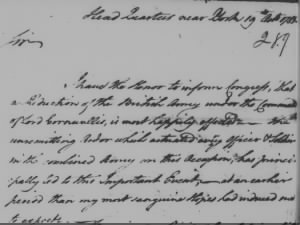 Head Quarters near York 19th Octr 1781
289
Sir
I have the Honor to inform Congress, that
a Reduction of the British Army under the Command
of Lord Cornwallis, is most happily effected — The
unremitting Ardor which actuated every Officer & Soldier
in the combined Army on this Occasion, has princi-
pally led to this Important Event, at an earlier
period than my most sanguine Hopes had induced me
to expect.